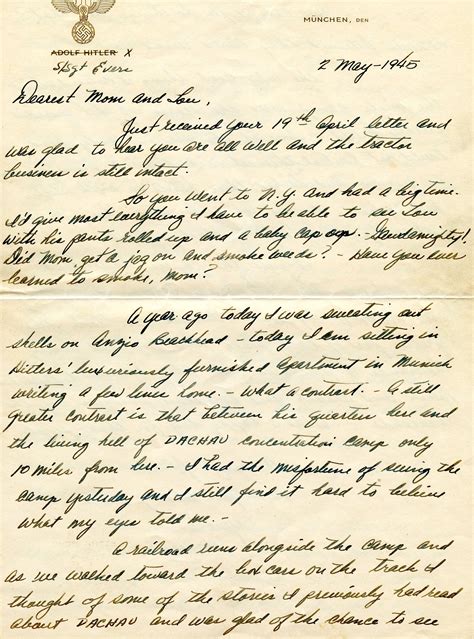 MÜNCHEN, DEN
ADOLF HITLER X
S/Sgt Evers
2 May-1945
Dearest Mom and Lou,
Just received your 19th April letter and
was glad to hear you are all well and the tractor
business is still intact.
So you went to N.Y. and had a big time.
I'd give most everything I have to be able to see Lou
with his pants rolled up and a baby cap on. - Lawdamighty!
Did Mom get a jag on and smoke weeds? - Have you ever
learned to smoke, Mom?
A year ago today I was sweating out
shells on Anzio Beachhead - today I am sitting in
Hitlers' luxuriously furnished apartment in Munich
writing a few lines home. - What a contrast. - A still
greater contrast is that between his quarters here and
the living hell of DACHAU concentration camp only
10 miles from here. - I had the misfortune of seeing the
camp yesterday and I still find it hard to believe
what my eyes told me. -
A railroad runs alongside the camp and
as we walked toward the box cars on the track I
thought of some of the stories I previously had read
about DACHAU and was glad of the chance to see